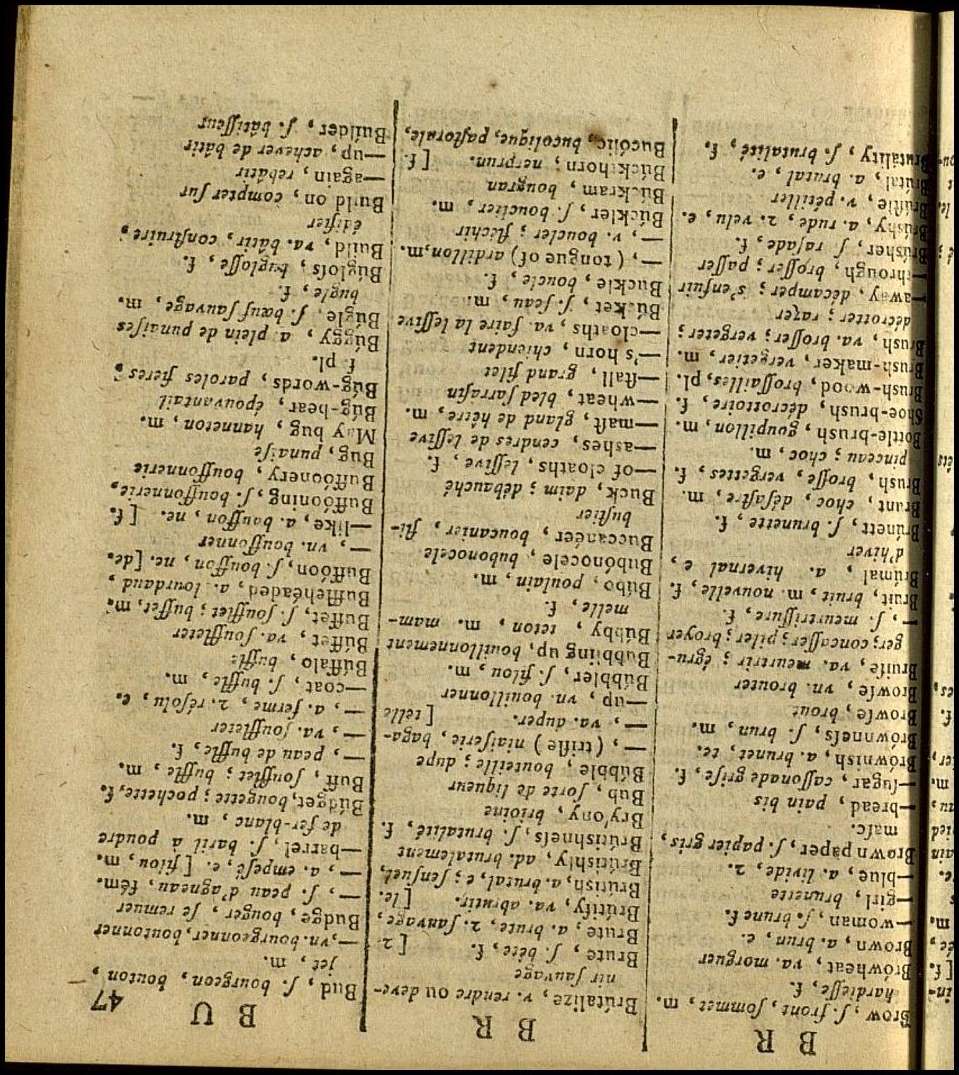 B R
Brow, ſ. front, ſommet, m.
hardieſſe, f.
Brówheat, va. morguer
Brown, a. brun, e.
—woman, ſ. brune f.
—girl, brunette
—blue, a. livide, 2.
Brown paper, ſ. papier gris,
maſc.
—bread, pain bis
—ſugar, caſſonade griſe, f.
Brównish, a. brunet, te.
Brównneſs, ſ. brun, m.
Browſe, brout
Browſe, vn. brouter
Bruiſe, va. meurtrir; égru-
ger; concaſſer; piler; broyer
—, ſ. meurtriſſure, f.
Bruit, bruit, m. nouvelle, f.
Brúmal, a. hivernal e,
d'hiver
Brúnett, ſ. brunette, f.
Brunt, choc, déſaſtre, m.
Brush, broſſe, vergettes, f.
pinceau; choc, m.
Bottle-brush, goupillon, m.
Shoe-brush, décrottoire, f.
Brush-wood, broſſailles, pl.
Brush-maker, vergetier, m.
Brush, va. broſſer; vergeter;
décrotter; razer
—away, décamper; s'enfuir
—through, broſſer; paſſer
Brúsher, ſ. raſade, f.
Brúshy, a. rude, 2. velu, e.
Brúſtle, v. pétiller
Brútal, a. brutal, e.
Brutálity, ſ. brutalité, f.
B R
Brútalize, v. rendre ou deve-
nir ſauvage
Brute, ſ. bête, f. [2.
Brute, a. brute, 2. ſauvage,
Brútify, va. abrutir. [le.
Brútish, a. brutal, e; ſenſuel,
Brútishly, ad. brutalement
Brútishneſs, ſ. brutalité, f.
Bryony, brioine
Bub, ſorte de liqueur
Búbble, bouteille; dupe
—, (trifle) niaiſerie, baga-
—, va. duper. [telle
—up, vn. bouillonner
Búbbler, ſ. filou, m.
Bubbiing up, bouillonnement
Búbby, teton, m. mam-
melle, f.
Búbo, poulain, m.
Bubónocele, bubonocele
Buccanéer, boucanier, fli-
buſtier
Buck, daim; débauché
—of cloaths, leſſive, f.
—ashes, cendres de leſſive
—maſt, gland de hêtre, m.
—wheat, bled ſarraſin
—ſtall, grand filet
—'s horn, chiendent
—cloaths, va. faire la leſſive
Búcket, ſ. ſeau, m.
Buckle, boucle, f.
—, (tongue of) ardillon, m.
—, v. boucler; fléchir
Búckler, ſ. bouclier, m.
Búckram, bougran
Búckthorn, nerprun. [f.
Bucólic, bucolique, paſtorale,
B U
47
Bud, ſ. bourgeon, bouton,
jet, m.
—, vn. bourgeonner, boutonner
Budge, bouger, ſe remuer
—, ſ. peau d'agneau, fém.
—, a. empeſé, e. [filou, m.
—barrel, ſ. baril à poudre
de fer-blanc, m.
Búdget, bougette; pochette, f.
Buff, ſoufflet; buffle, m.
—, peau de buffle, f.
—, va. ſouffleter
—, a. ferme, 2. réſolu, e.
—coat, ſ. buffle, m.
Búffalo, buffle
Búffet, va. ſouffleter
Buffet, ſ. ſoufflet; buffet, m.
Buffléheaded, a. lourdaud,
Buffóon, ſ. bouffon, ne. [de.
—, vn. bouffonner
—like, a. bouffon, ne. [f.
Buffóoning, ſ. bouffonnerie,
Buffóonery, bouffonnerie
Bug, punaiſe
May bug, hanneton, m.
Búg-bear, épouvantail
Búg-words, paroles fieres,
f. pl.
Búggy, a plein de punaiſes
Búgle, ſ. bœuf ſauvage, m.
bugle, f.
Búgloſs, bugloſſe, f.
Build, va. bâtir, conſtruire,
édifier
Build on, compter ſur
—again, rebâtir
—up, achever de bâtir
Búilder, ſ. bâtiſſeur